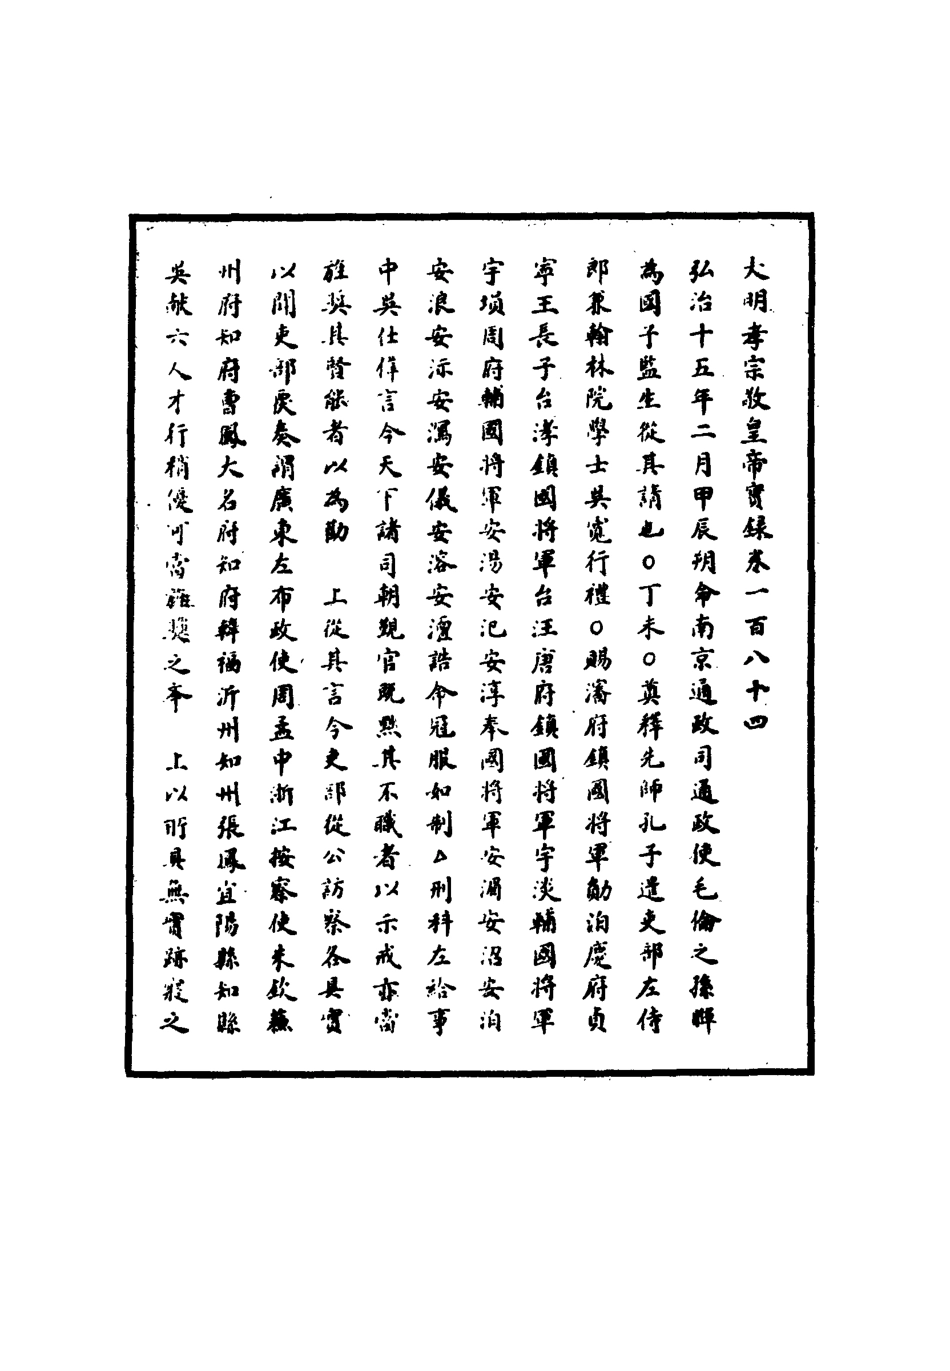 大明孝宗敬皇帝實録卷一百八十四
弘治十五年二月甲辰朔命南京通政司通政使毛倫之孫暉
為國子監生從其請也○丁未○奠釋先師孔子遣吏部左侍
郎兼翰林院學士吳寬行禮○賜瀋府鎮國將軍勛泊慶府貞
寧王長子台浡鎮國將軍台汪唐府鎮國將軍宇淡輔國將軍
宇塤周府輔國將軍安湯安汜安淳奉國將軍安湄安沼安泊
安浪安沶安瀉安儀安溶安澶誥命冠服如制△刑科左給事
中吳仕偉言今天下諸司朝覲官既黜其不職者以示戒亦當
旌奬其賢能者以為勸　上從其言令吏部從公訪察各具實
以聞吏部覆奏謂廣東左布政使周孟中浙江按察使朱欽蘇
州府知府曹鳳大名府知府韓福沂州知州張鳳宜陽縣知縣
吳献六人才行稍優可當旌奬之奉　上以所具無實跡寢之